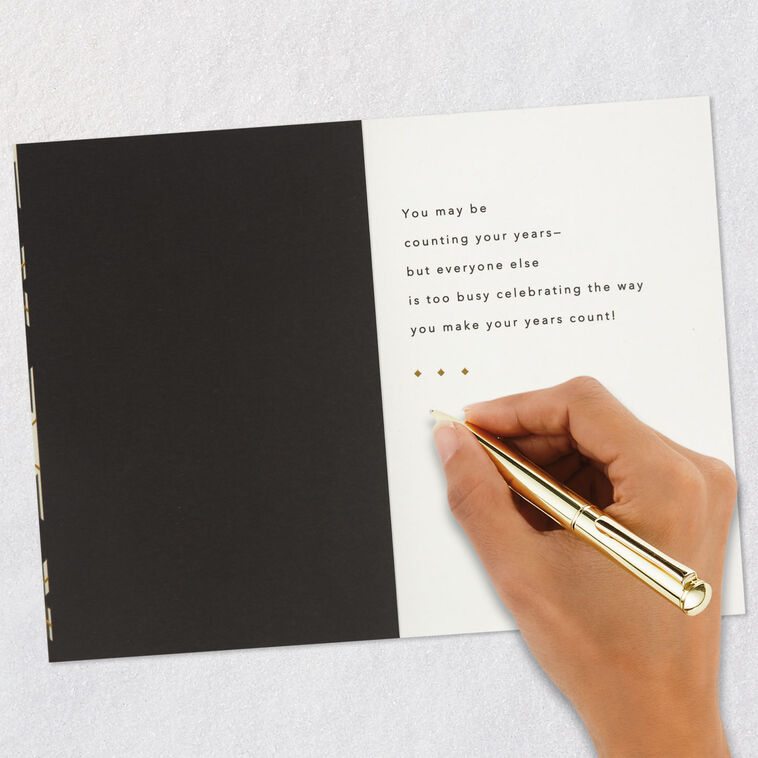 You may be
counting your years–
but everyone else
is too busy celebrating the way
you make your years count!